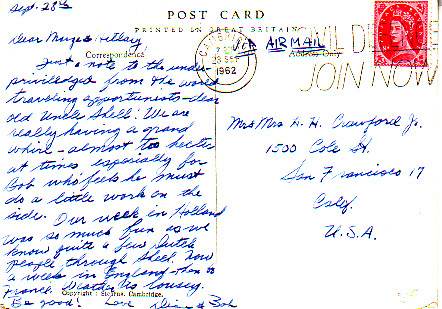 Sept. 28th
POST CARD
PRINTED IN GREAT BRITAIN
Correspondence
Address Only
VIA AIR MAIL
CIVIL DEFENCE
JOIN NOW
28 SEP
1962
Just a note to the under-
privileged from the world
traveling opportunists - dear
old Uncle Shell! We are
really having a grand
whirl - almost too hectic
at times especially for
Bob who feels he must
do a little work on the
side. Our week in Holland
was so much fun as we
know quite a few Dutch
people through Shell. Now
a week in England then to
France. Weather is lousy.
Be good! Love Bob
Copyright : Stearns, Cambridge.
Mr & Mrs H. H. Crawford Jr.
1500 Cole St.
San Francisco 17
Calif.
U.S.A.